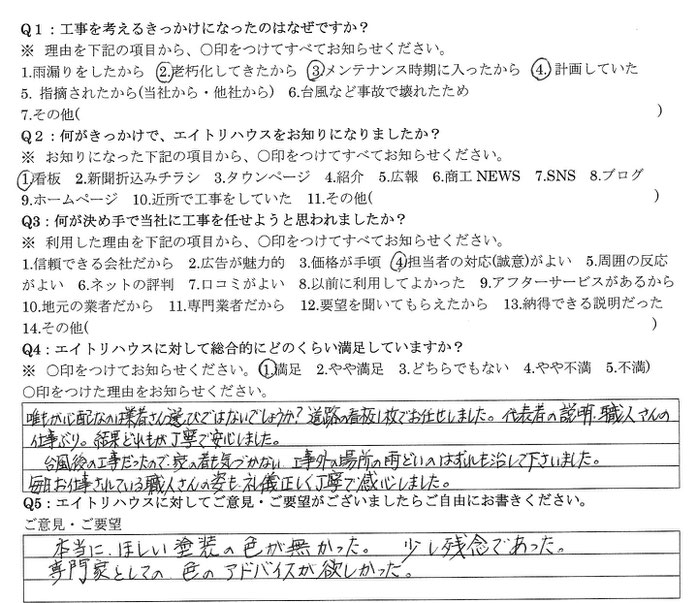 Q1：工事を考えるきっかけになったのはなぜですか？
※ 理由を下記の項目から、○印をつけてすべてお知らせください。
1.雨漏りをしたから 2.老朽化してきたから 3.メンテナンス時期に入ったから 4.計画していた
5. 指摘されたから(当社から・他社から) 6.台風など事故で壊れたため
7.その他( )
Q2：何がきっかけで、エイトリハウスをお知りになりましたか？
※ お知りになった下記の項目から、○印をつけてすべてお知らせください。
1.看板 2.新聞折込みチラシ 3.タウンページ 4.紹介 5.広報 6.商工 NEWS 7.SNS 8.ブログ
9.ホームページ 10.近所で工事をしていた 11.その他( )
Q3：何が決め手で当社に工事を任せようと思われましたか？
※ 利用した理由を下記の項目から、○印をつけてすべてお知らせください。
1.信頼できる会社だから 2.広告が魅力的 3.価格が手頃 4.担当者の対応(誠意)がよい 5.周囲の反応
がよい 6.ネットの評判 7.口コミがよい 8.以前に利用してよかった 9.アフターサービスがあるから
10.地元の業者だから 11.専門業者だから 12.要望を聞いてもらえたから 13.納得できる説明だった
14.その他( )
Q4：エイトリハウスに対して総合的にどのくらい満足していますか？
※ ○印をつけてお知らせください。 1.満足 2.やや満足 3.どちらでもない 4.やや不満 5.不満)
○印をつけた理由をお知らせください。
唯もが心配なのは業者さん選びではないでしょうか？道路の看板1枚でお任せしました。代表者の説明、職人さんの
仕事ぶり。結果どれもが丁寧で安心しました。
台風後の工事だったので、家の者も気づかない 工事外の場所の雨どいのはずれも治して下さいました。
毎日お仕事されている職人さんの姿も、礼儀正しく丁寧で感心しました。
Q5：エイトリハウスに対してご意見・ご要望がございましたらご自由にお書きください。
ご意見・ご要望
本当に、ほしい塗装の色が無かった。 少し残念であった。
専門家としての 色のアドバイスが欲しかった。